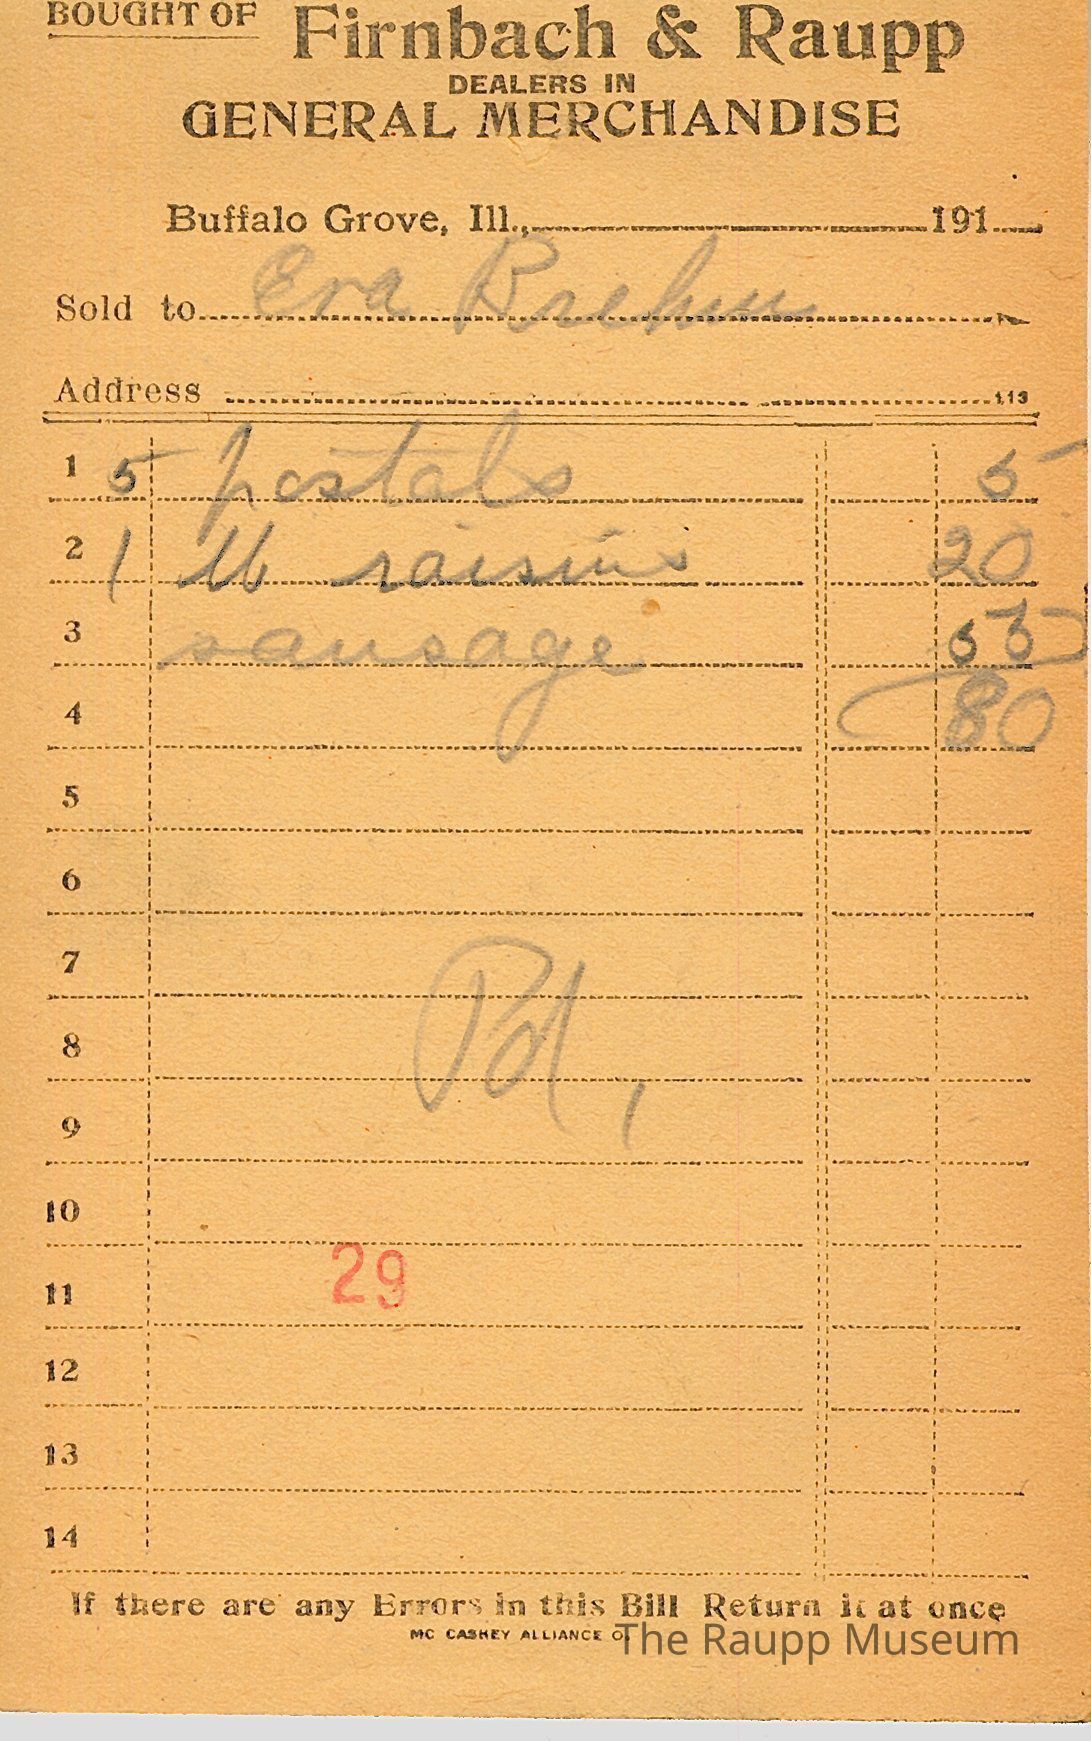 BOUGHT OF Firnbach & Raupp
DEALERS IN
GENERAL MERCHANDISE
Buffalo Grove, Ill., 191
Sold to Eva Brehm
Address 113
1 5 postals 5
2 1 lb raisins 20
3 sausage 55
4 80
5
6
7
8 Pd,
9
10
11 29
12
13
14
If there are any Errors in this Bill Return it at once
MC CASKEY ALLIANCE O.
The Raupp Museum